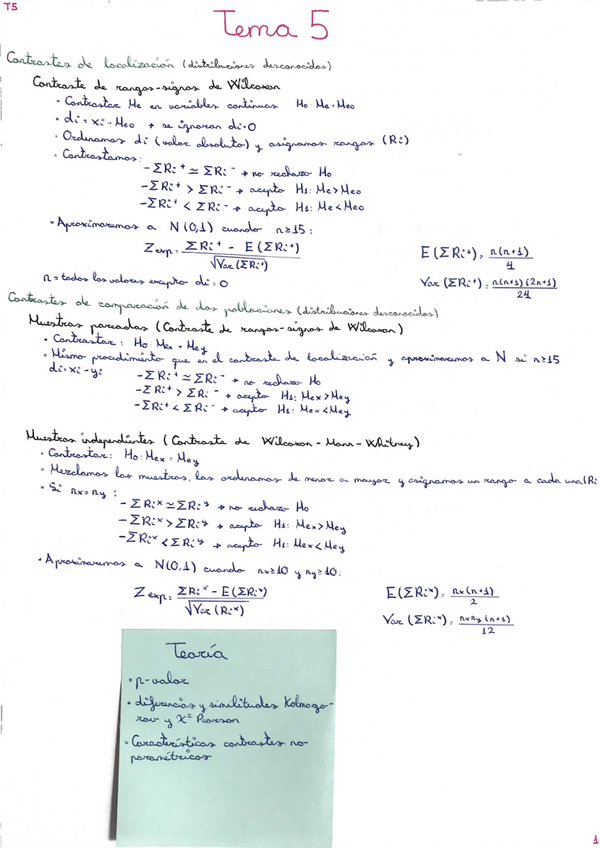 T5
Tema 5
Contrastes de localización (distribuciones desconocidas)
Contraste de rangos-signos de Wilcoxon
• Contrastar Me en variables continuas H0: Me = Me0
• di = xi - Me0 → se ignoran di=0
• Ordenamos di (valor absoluto) y asignamos rangos (Ri)
• Contrastamos:
- ΣRi⁺ ≃ ΣRi⁻ → no rechazo H0
- ΣRi⁺ > ΣRi⁻ → acepto H1: Me>Me0
- ΣRi⁺ < ΣRi⁻ → acepto H1: Me<Me0
• Aproximaremos a N(0,1) cuando n≥15:
Zexp = (ΣRi⁺ - E(ΣRi⁺)) / √Var(ΣRi⁺)
E(ΣRi⁺) = n(n+1)/4
Var(ΣRi⁺) = n(n+1)(2n+1)/24
n = todos los valores excepto di=0
Contrastes de comparación de dos poblaciones (distribuciones desconocidas)
Muestras pareadas (Contraste de rangos-signos de Wilcoxon)
• Contrastar: H0: Mex = Mey
• Mismo procedimiento que en el contraste de localización y aproximaremos a N si n≥15
di = xi - yi
- ΣRi⁺ ≃ ΣRi⁻ → no rechazo H0
- ΣRi⁺ > ΣRi⁻ → acepto H1: Mex>Mey
- ΣRi⁺ < ΣRi⁻ → acepto H1: Mex<Mey
Muestras independientes (Contraste de Wilcoxon-Mann-Whitney)
• Contrastar: H0: Mex = Mey
• Mezclamos las muestras, las ordenamos de menor a mayor y asignamos un rango a cada una (Ri
• Si nx = ny :
- ΣRiˣ ≃ ΣRiʸ → no rechazo H0
- ΣRiˣ > ΣRiʸ → acepto H1: Mex>Mey
- ΣRiˣ < ΣRiʸ → acepto H1: Mex<Mey
• Aproximaremos a N(0,1) cuando nx≥10 y ny≥10:
Zexp = (ΣRiˣ - E(ΣRiˣ)) / √Var(Riˣ)
E(ΣRiˣ) = nx(n+1)/2
Var(ΣRiˣ) = nxny(n+1)/12
Teoría
• p-valor
• diferencias y similitudes Kolmogo-
rov y X² Pearson
• Características contrastes no
paramétricos
1